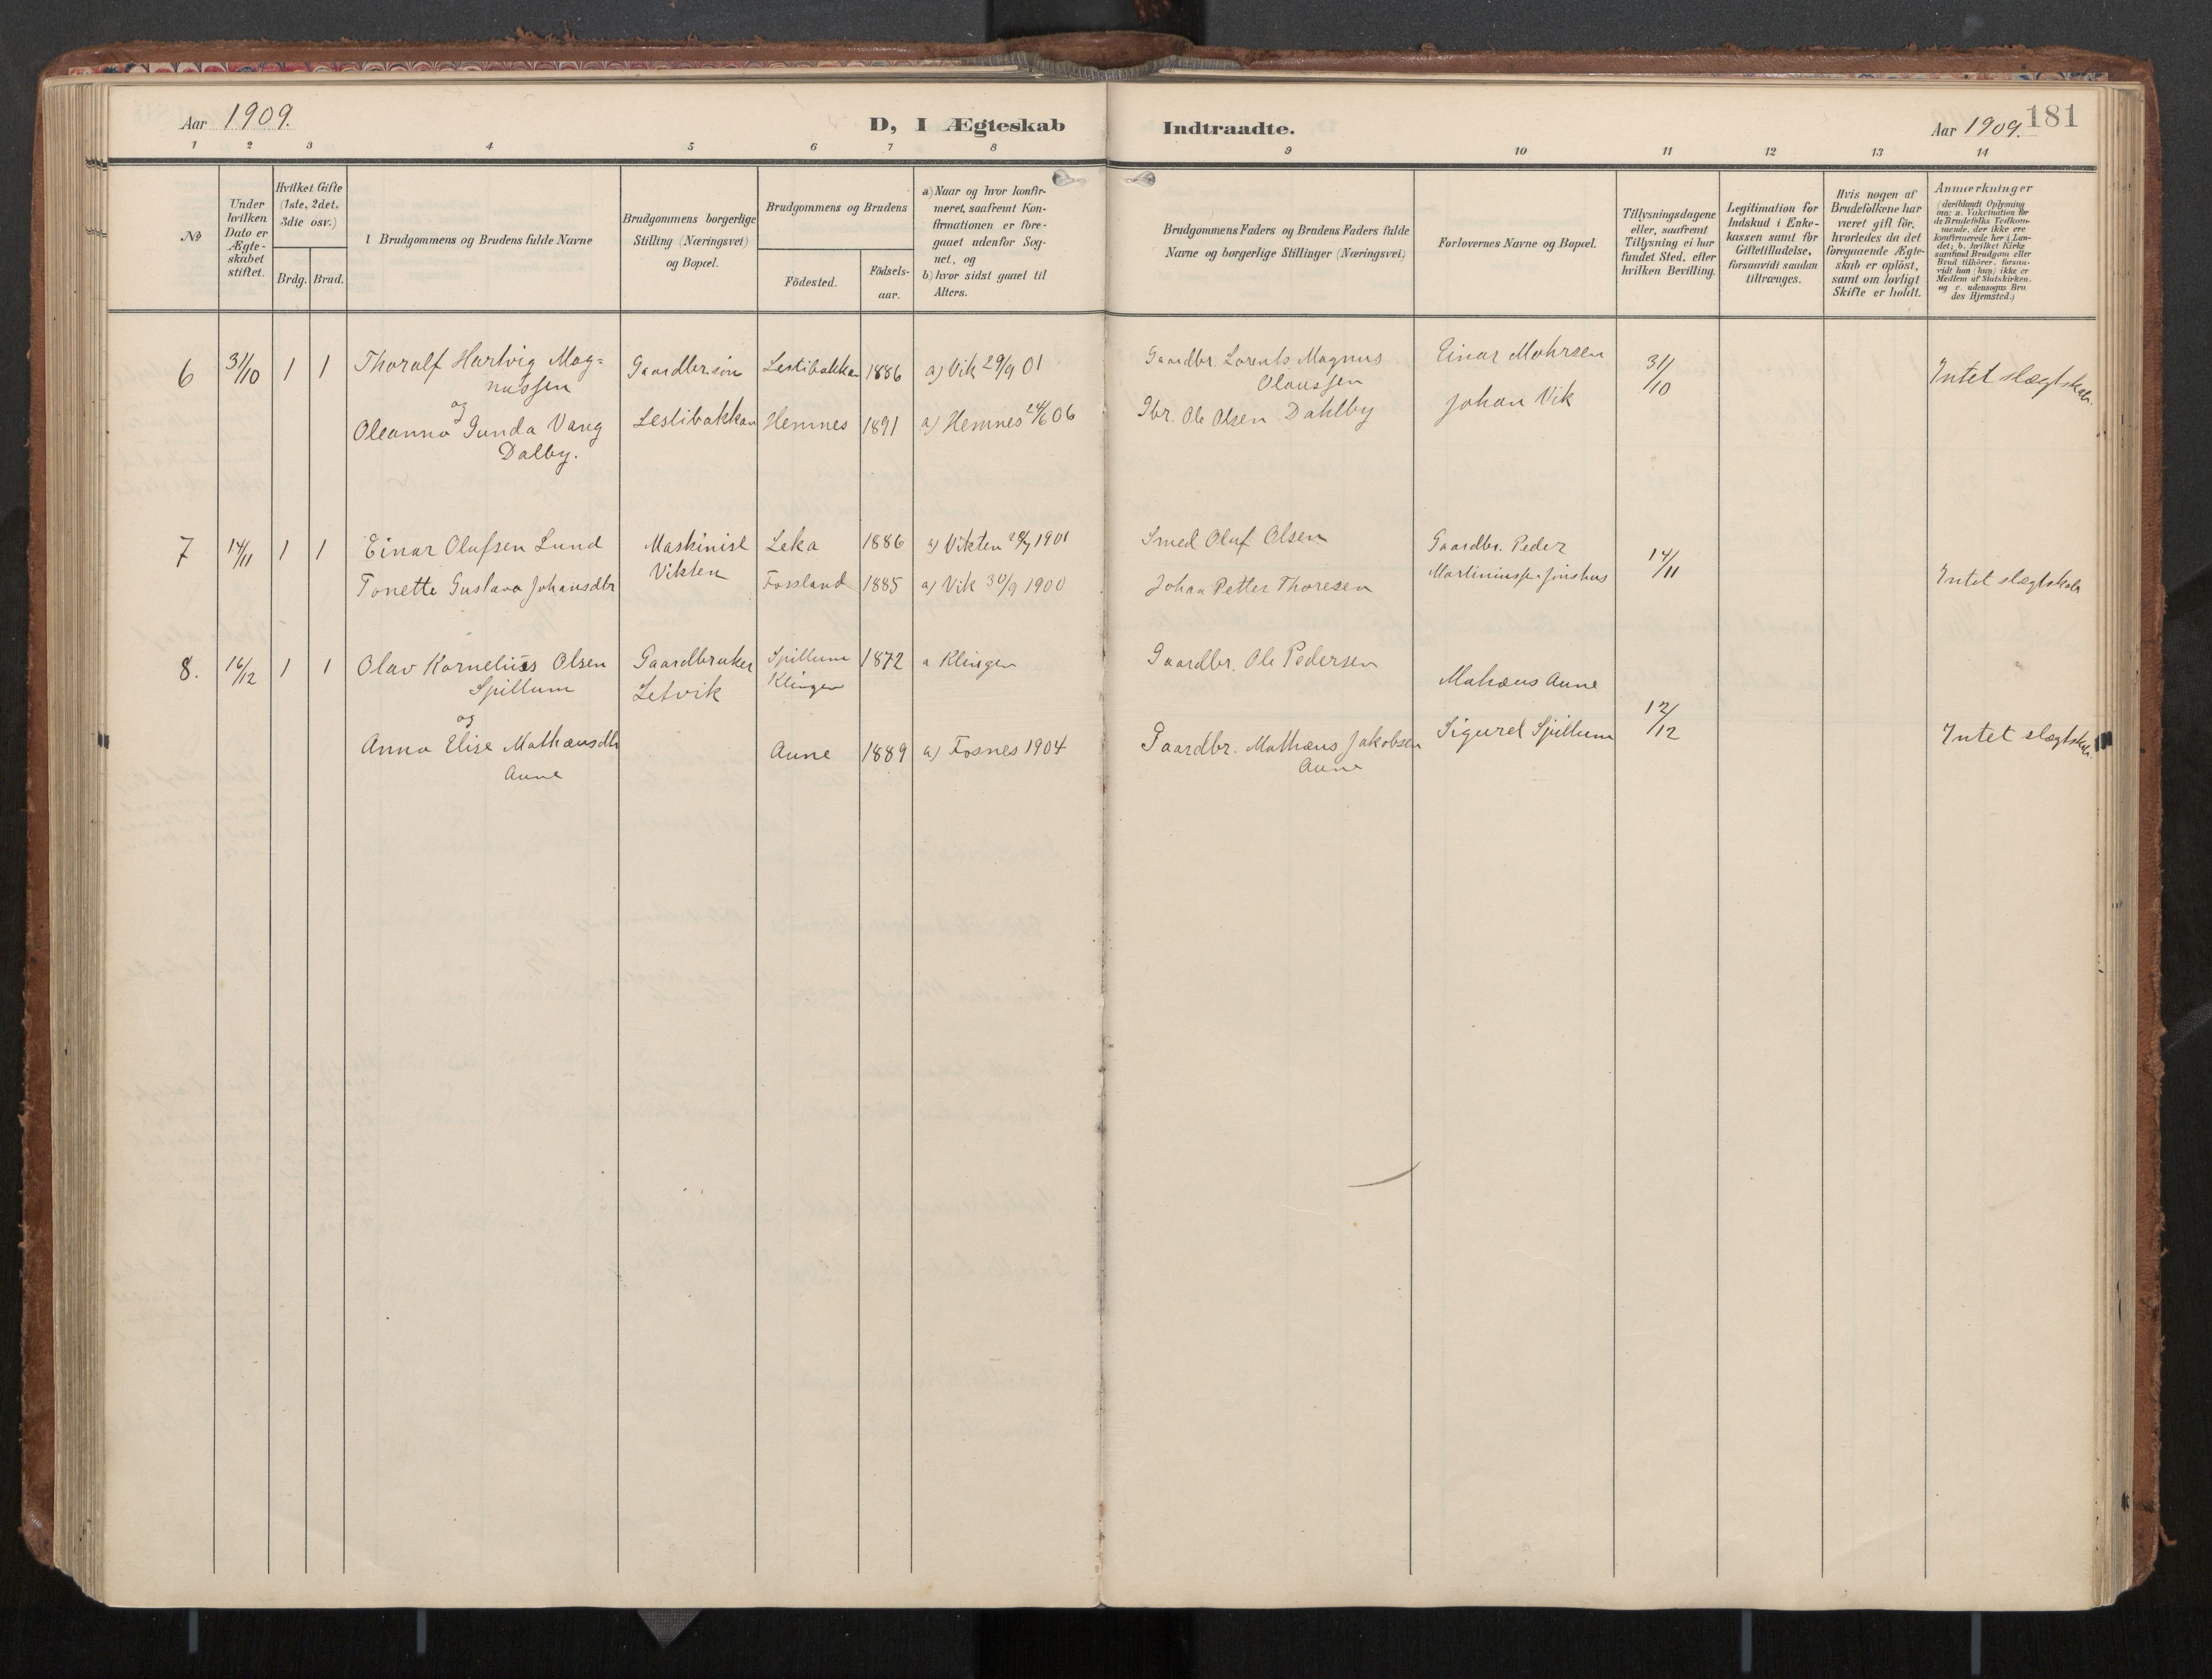 Aar 1909.
D, I Ægteskab
Indtraadte.
Aar 1909.
181
1 2 3 4 5 6 7 8 9 10 11 12 13 14
№
Under
hvilken
Dato er
Ægte-
skabet
stiftet.
Hvilket Gifte
(1ste, 2det,
3die osv.)
Brdg.
Brud.
Brudgommens og Brudens fulde Navne
Brudgommens borgerlige
Stilling (Næringsvei)
og Bopæl.
Brudgommens og Brudens
Födested.
Födsels-
aar.
a) Naar og hvor konfir-
meret, saafremt Kon-
firmationen er fore-
gaaet udenfor Sog-
net, og
b) hvor sidst gaaet til
Alters.
Brudgommens Faders og Brudens Faders fulde
Navne og borgerlige Stillinger (Næringsvei)
Forlovernes Navne og Bopæl.
Tillysningsdagene
eller, saafremt
Tillysning ei har
fundet Sted, efter
hvilken Bevilling.
Legitimation for
Indskud i Enke-
kassen samt for
Giftetilladelse,
forsaavidt saadan
tiltrænges.
Hvis nogen af
Brudefolkene har
været gift för,
hvorledes da det
foregaaende Ægte-
skab er oplöst,
samt om lovligt
Skifte er holdt.
Anmærkninger
(deriblandt Oplysning
om: a. Vakcination for
de Brudefolks Vedkom-
mende, der ikke ere
konfirmerede her i Lan-
det; b. hvilket Kirke
samfund Brudgom eller
Brud tilhörer, forsaa-
vidt han (hun) ikke er
Medlem af Statskirken,
og c. udensogns Bru
des Hjemsted.)
6 31/10 1 1 Thoralf Hartvig Mag=
nussen
og
Oleanna Gunda Vang
Dalby.
Gaardbr.søn
Lestibakkan
Lestibakkan 1886 a) Vik 29/9 01
Hemnes 1891 a) Hemnes 24/6 06
Gaardbr. Lorents Magnus
Olaussen
Gbr. Ole Olsen Dahlby
Einar Mohrsen
Johan Vik
31/10
Intet slægtskab.
7 14/11 1 1 Einar Olufsen Lund
Tonette Gustava Johansdtr
Maskinist
Vikten
Leka 1886 a) Vikten 29/9 1901
Fossland 1885 a) Vik 30/9 1900
Smed Oluf Olsen
Johan Petter Thoresen
Gaardbr. Peder
14/11
Intet slægtskab
8. 16/12 1 1 Olav Kornelius Olsen
Spillum
og
Anna Elise Mathæusdtr
Aune
Gaardbruker
Letvik
Spillum
Klingen
1872 a Klingen
Aune 1889 a) Fosnes 1904
Gaardbr. Ole Pedersen
Gaardbr. Mathæus Jakobsen
Aune
Mahæus Aune
Sigurd Spillum
12/12
Intet slægtskab.